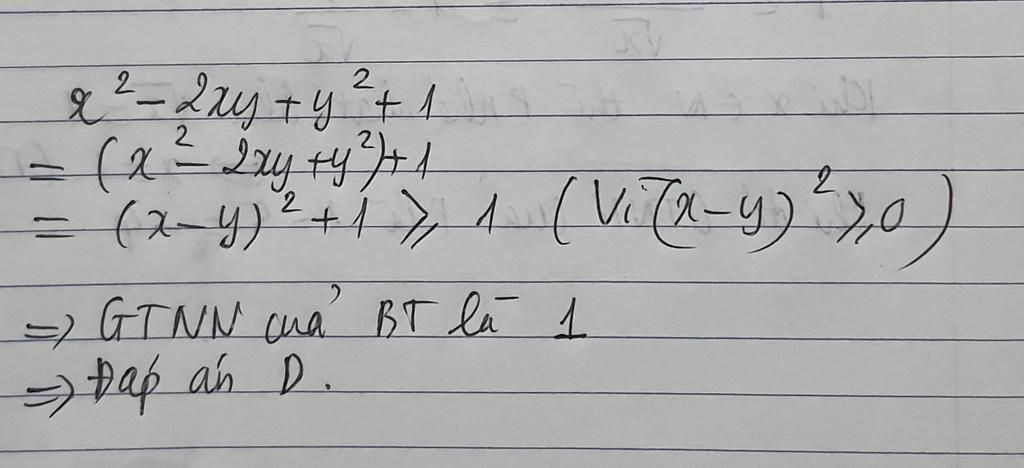 x² - 2xy + y² + 1
= (x² - 2xy + y²) + 1
= (x - y)² + 1 ⩾ 1 (Vì (x - y)² ⩾ 0)
=> GTNN của BT là 1
=> Đáp án D.